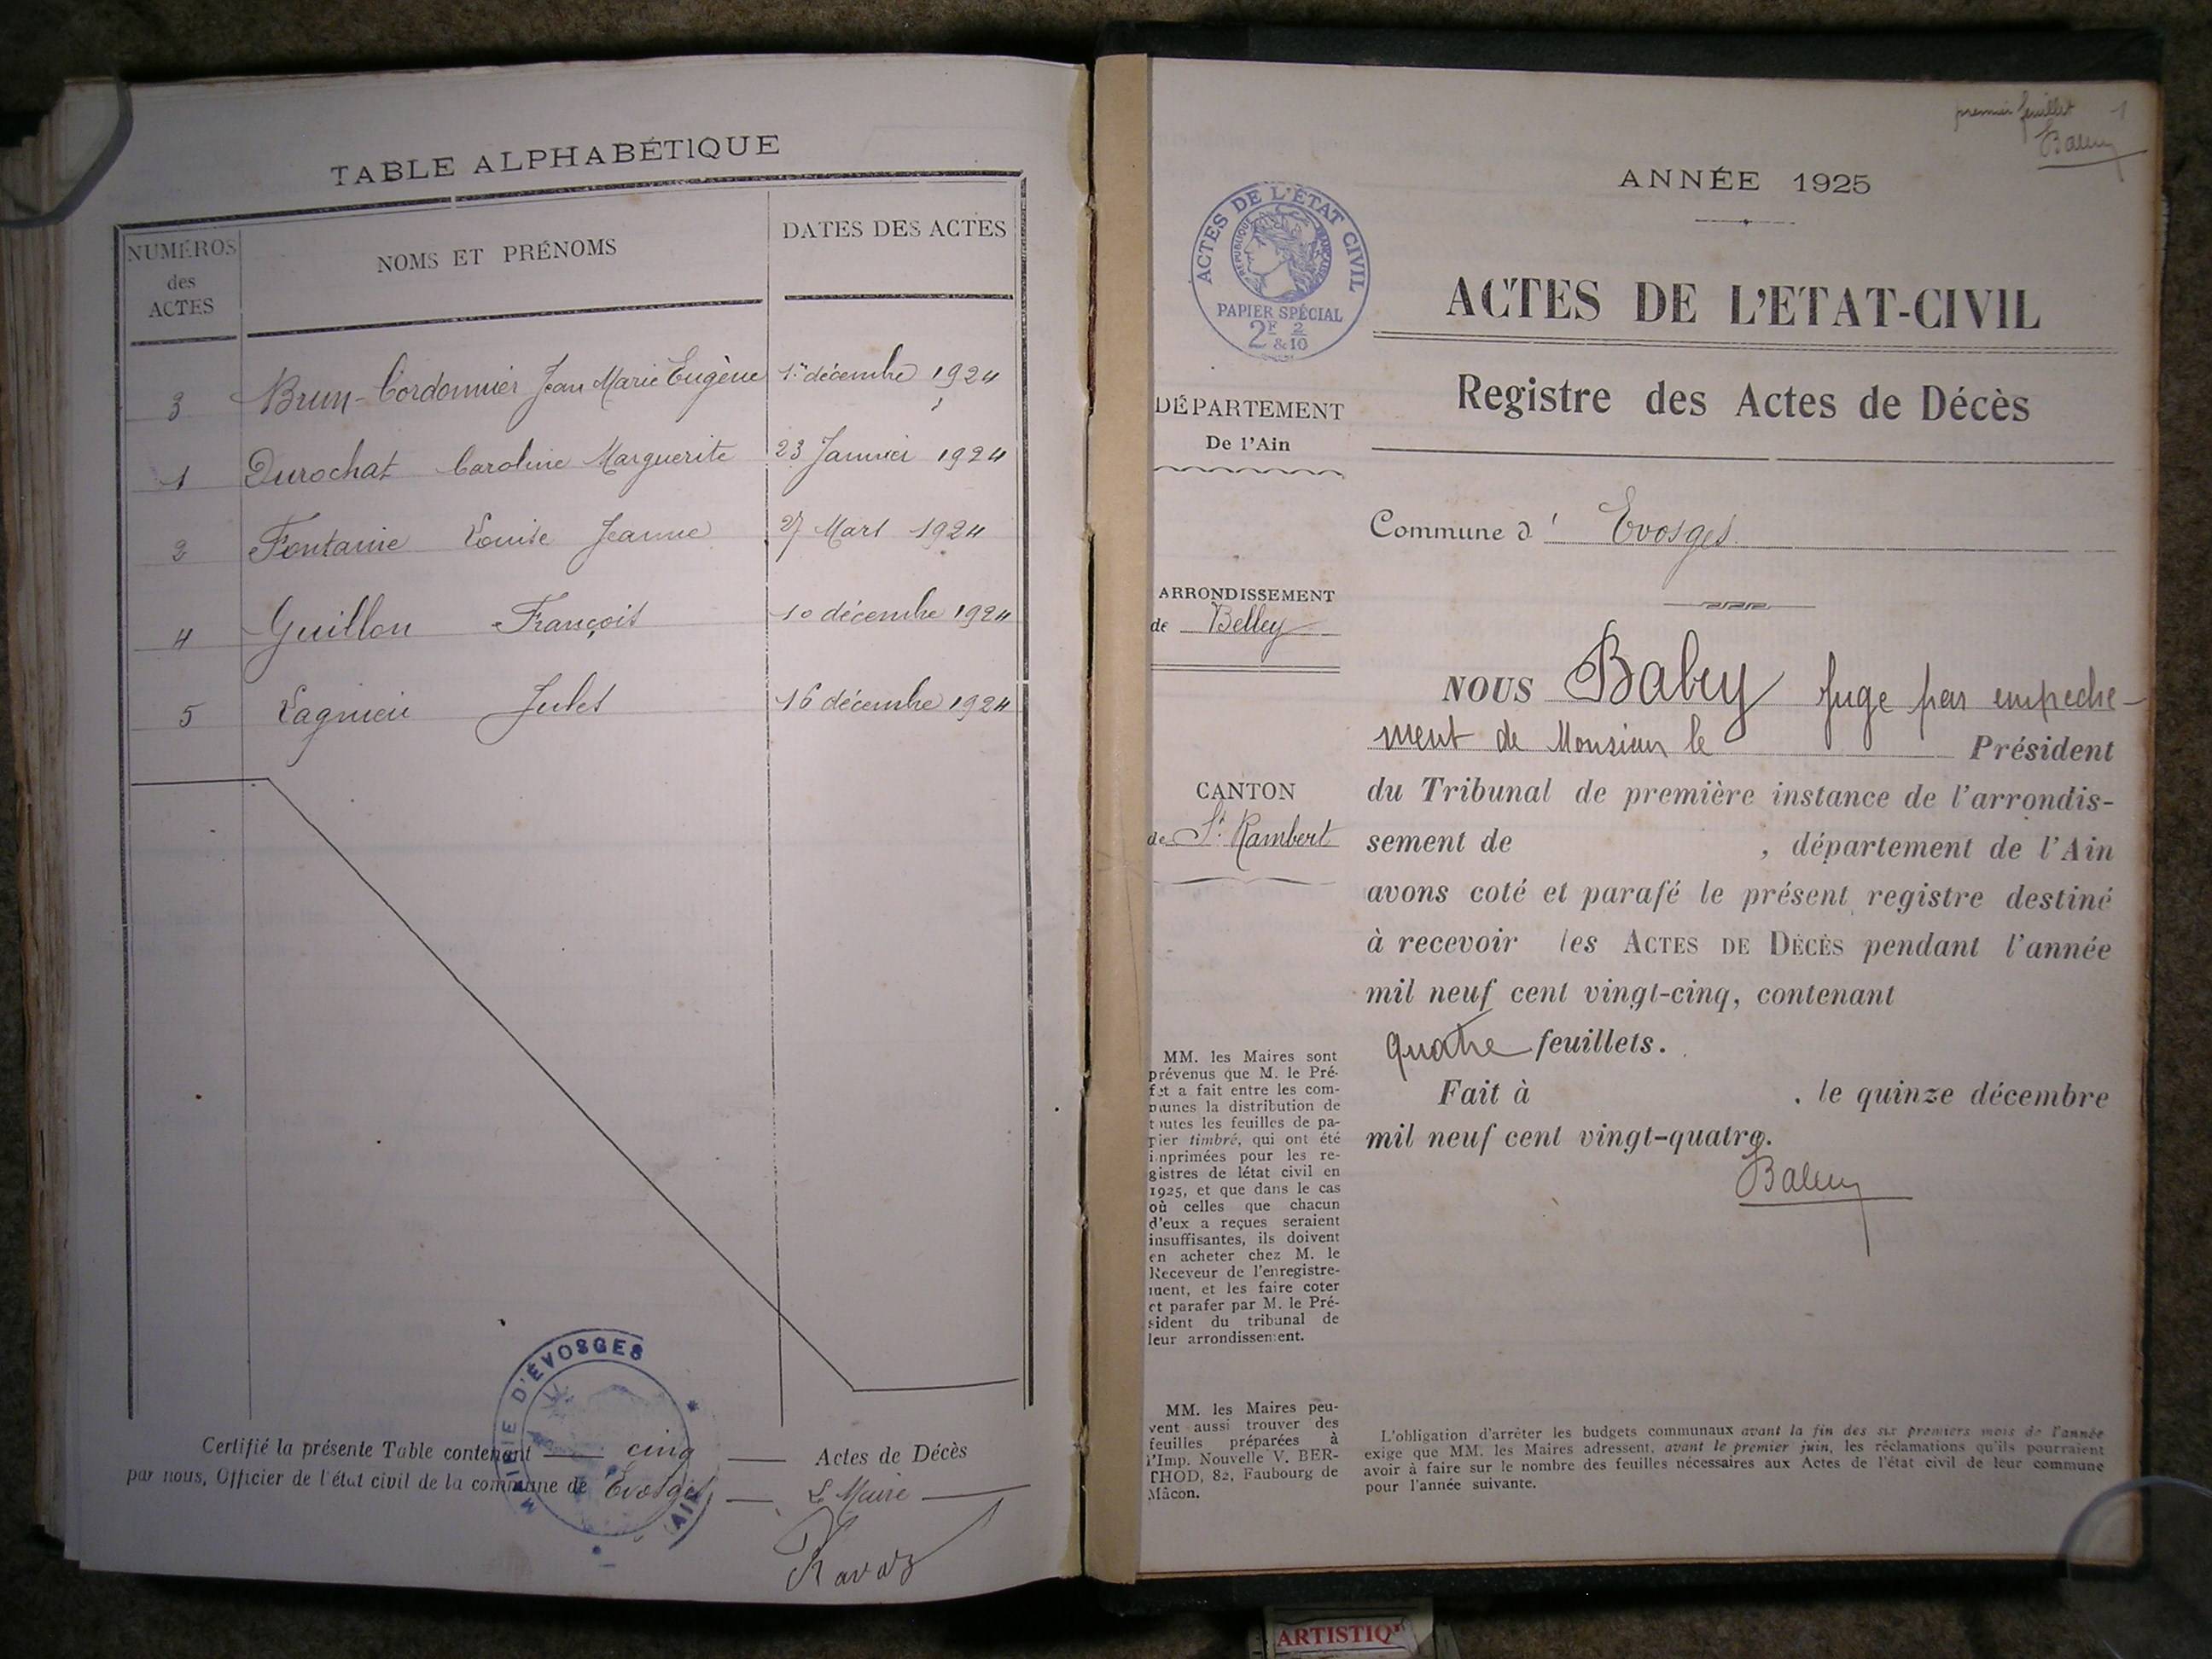 TABLE ALPHABÉTIQUE
NUMÉROS
des
ACTES
NOMS ET PRÉNOMS
DATES DES ACTES
3 Brun-Cordonnier Jean Marie Eugène 1er décembre 1924
1 Durochat Caroline Marguerite 23 Janvier 1924
2 Fontaine Louise Jeanne 27 Mars 1924
4 Guillon François 10 décembre 1924
5 Lagnieu Jules 16 décembre 1924
Certifié la présente Table contenant cinq Actes de Décès
par nous, Officier de l'état civil de la commune de Evosges,
Le Maire
Ravaz
MAIRIE D'ÉVOSGES
AIN
premier feuillet 1
Babey
ANNÉE 1925
ACTES DE L'ÉTAT CIVIL
RÉPUBLIQUE FRANÇAISE
PAPIER SPÉCIAL
2F & 2/10
ACTES DE L'ETAT-CIVIL
Registre des Actes de Décès
DÉPARTEMENT
De l'Ain
Commune d' Evosges
ARRONDISSEMENT
de Belley
CANTON
de St Rambert
NOUS Babey Juge par empeche-
ment de Monsieur le Président
du Tribunal de première instance de l'arrondis-
sement de , département de l'Ain
avons coté et parafé le présent registre destiné
à recevoir les ACTES DE DÉCÈS pendant l'année
mil neuf cent vingt-cinq, contenant
quatre feuillets.
Fait à , le quinze décembre
mil neuf cent vingt-quatre.
Babey
MM. les Maires sont
prévenus que M. le Pré-
fet a fait entre les com-
munes la distribution de
toutes les feuilles de pa-
pier timbré, qui ont été
imprimées pour les re-
gistres de létat civil en
1925, et que dans le cas
où celles que chacun
d'eux a reçues seraient
insuffisantes, ils doivent
en acheter chez M. le
Receveur de l'enregistre-
ment, et les faire coter
et parafer par M. le Pré-
sident du tribunal de
leur arrondissement.
MM. les Maires peu-
vent aussi trouver des
feuilles préparées à
l'Imp. Nouvelle V. BER-
THOD, 82, Faubourg de
Mâcon.
L'obligation d'arrêter les budgets communaux avant la fin des six premiers mois de l'année
exige que MM. les Maires adressent, avant le premier juin, les réclamations qu'ils pourraient
avoir à faire sur le nombre des feuilles nécessaires aux Actes de l'état civil de leur commune
pour l'année suivante.
ARTISTIQ